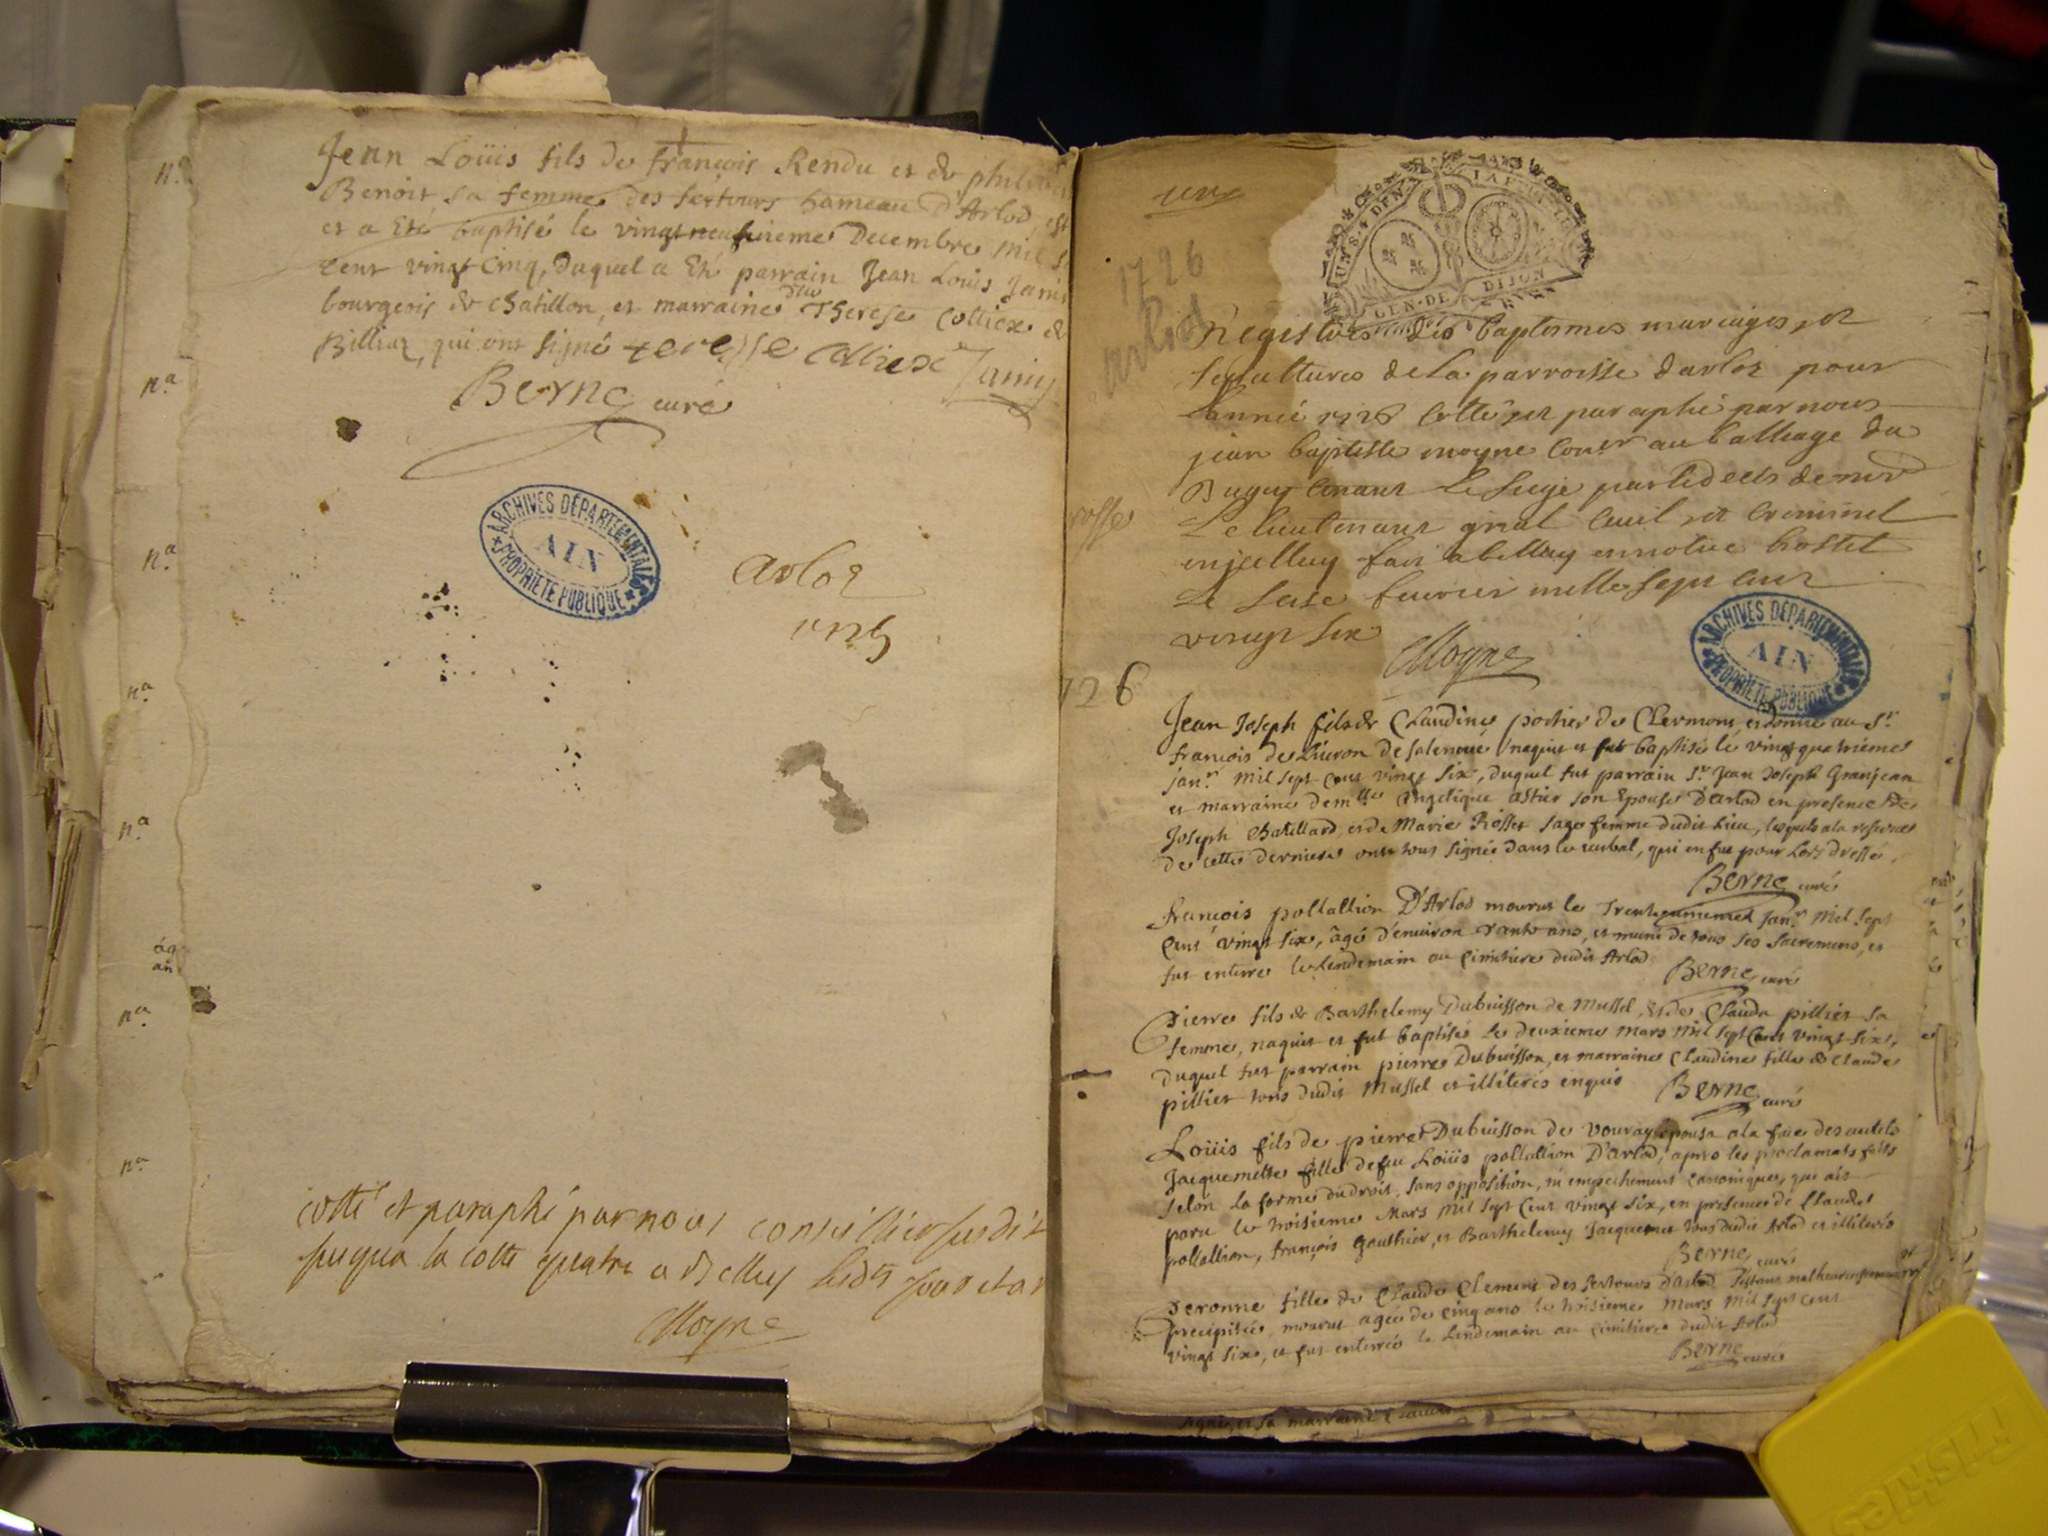 Jean Loüis fils de françois Rendu et de
Benoit sa femme des hameau D'Arlod, est
et a Eté baptisé le vingt Decembre mil
cent vingt Cinq, duquel a Eté parrain Jean Louis
bourgeois de Chatillon, et marraine Dlle Therese Colliex de
Billiaz, qui ont signé Colliex
Berne curé
ARCHIVES DÉPARTEMENTALES
AIN
PROPRIÉTÉ PUBLIQUE
Arloz
1725
Cotté et paraphé par nous conseillier susdit
jusqua la cotte quatre a Belley
Moyne
une
1726
Arlod
GEN·DE DIJON
Registres des baptesmes mariages et
sepultures de la parroisse darloz pour
Lannée 1726 Cotté et paraphé par nous
jean baptiste moyne Consr au balliage du
Bugey
Le lieutenant gnal Civil et Criminel
fait a belley en notre hostel
Le Seise feuvrier mille sept cent
vingt six
Moyne
ARCHIVES DÉPARTEMENTALES
AIN
PROPRIÉTÉ PUBLIQUE
726
Jean Joseph fils de Claudine portier de Clermont, et donné au Sr
françois de naquit et fut baptisé le vingt quatrieme
janr mil sept cent vingt six, duquel fut parrain Sr Jean Joseph Granjean
et marraine demlle Angelique astier son Epouse d'Arlod en presence de
Joseph Batillard, et de Marie Rosset sage femme dudit Lieu, lesquels a la reserve
de cette derniere ont tous signé dans le verbal, qui en fut pour Lors dressé.
Berne curé
françois pollallion D'Arlod mourut le Trente janr mil sept
Cent vingt six, âgé d'environ ans, et muni de tous ses Sacremens, et
fut enterré le Lendemain au Cimitiere dudit Arlod
Berne curé
Pierre fils de Barthelemy Dubuisson de Mussel, et de Clauda pillier sa
femme, naquit et fut baptisé le deuxieme Mars mil sept Cent vingt six,
duquel fut parrain pierre Dubuisson, et marraine Claudine fille de Claude
pillier tous dudit Mussel et illiterés enquis
Berne curé
Loüis fils de pierre Dubuisson de vouvray epousa a la face des autels
Jacquemette fille de feu Loüis pollallion D'arlod, apres les proclamats faits
selon la forme du droit, sans opposition, ni empechement canonique, qui ait
paru le troisieme Mars mil sept Cent vingt six, en presence de Claude
pollallion, françois Gauthier, et Barthelemy Jacquemet tous dudit Arlod et illiterés
Berne curé
Peronne fille de Claude Clement des d'arlod s'estant malheureusement
precipitée, mourut agée de cinq ans le troisieme Mars mil sept cent
vingt six, et fut enterrée le Lendemain au Cimitiere dudit Arlod
Berne curé